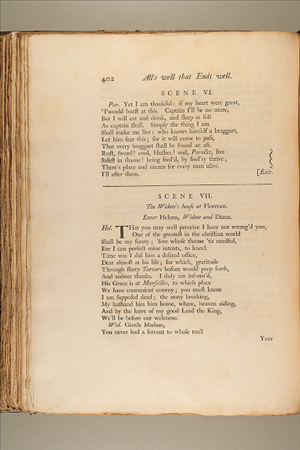 402 All's well that Ends well.
SCENE VI.
Par. Yet I am thankful: if my heart were great,
'Twould burst at this. Captain I'll be no more,
But I will eat and drink, and sleep as soft
As captain shall. Simply the thing I am
Shall make me live: who knows himself a braggart,
Let him fear this; for it will come to pass,
That every braggart shall be found an ass.
Rust, sword! cool, blushes! and, Parolles, live
Safest in shame! being fool'd, by fool'ry thrive;
There's place and means for every man alive.
I'll after them. [Exit.
SCENE VII.
The Widow's house at Florence.
Enter Helena, Widow and Diana.
Hel. THat you may well perceive I have not wrong'd you,
One of the greatest in the christian world
Shall be my surety; 'fore whose throne 'tis needful,
Ere I can perfect mine intents, to kneel.
Time was I did him a desired office,
Dear almost as his life; for which, gratitude
Through flinty Tartars bosom would peep forth,
And answer thanks. I duly am inform'd,
His Grace is at Marseilles, to which place
We have convenient convoy; you must know
I am supposed dead; the army breaking,
My husband hies him home, where, heaven aiding,
And by the leave of my good Lord the King,
We'll be before our welcome.
Wid. Gentle Madam,
You never had a servant to whose trust
Your